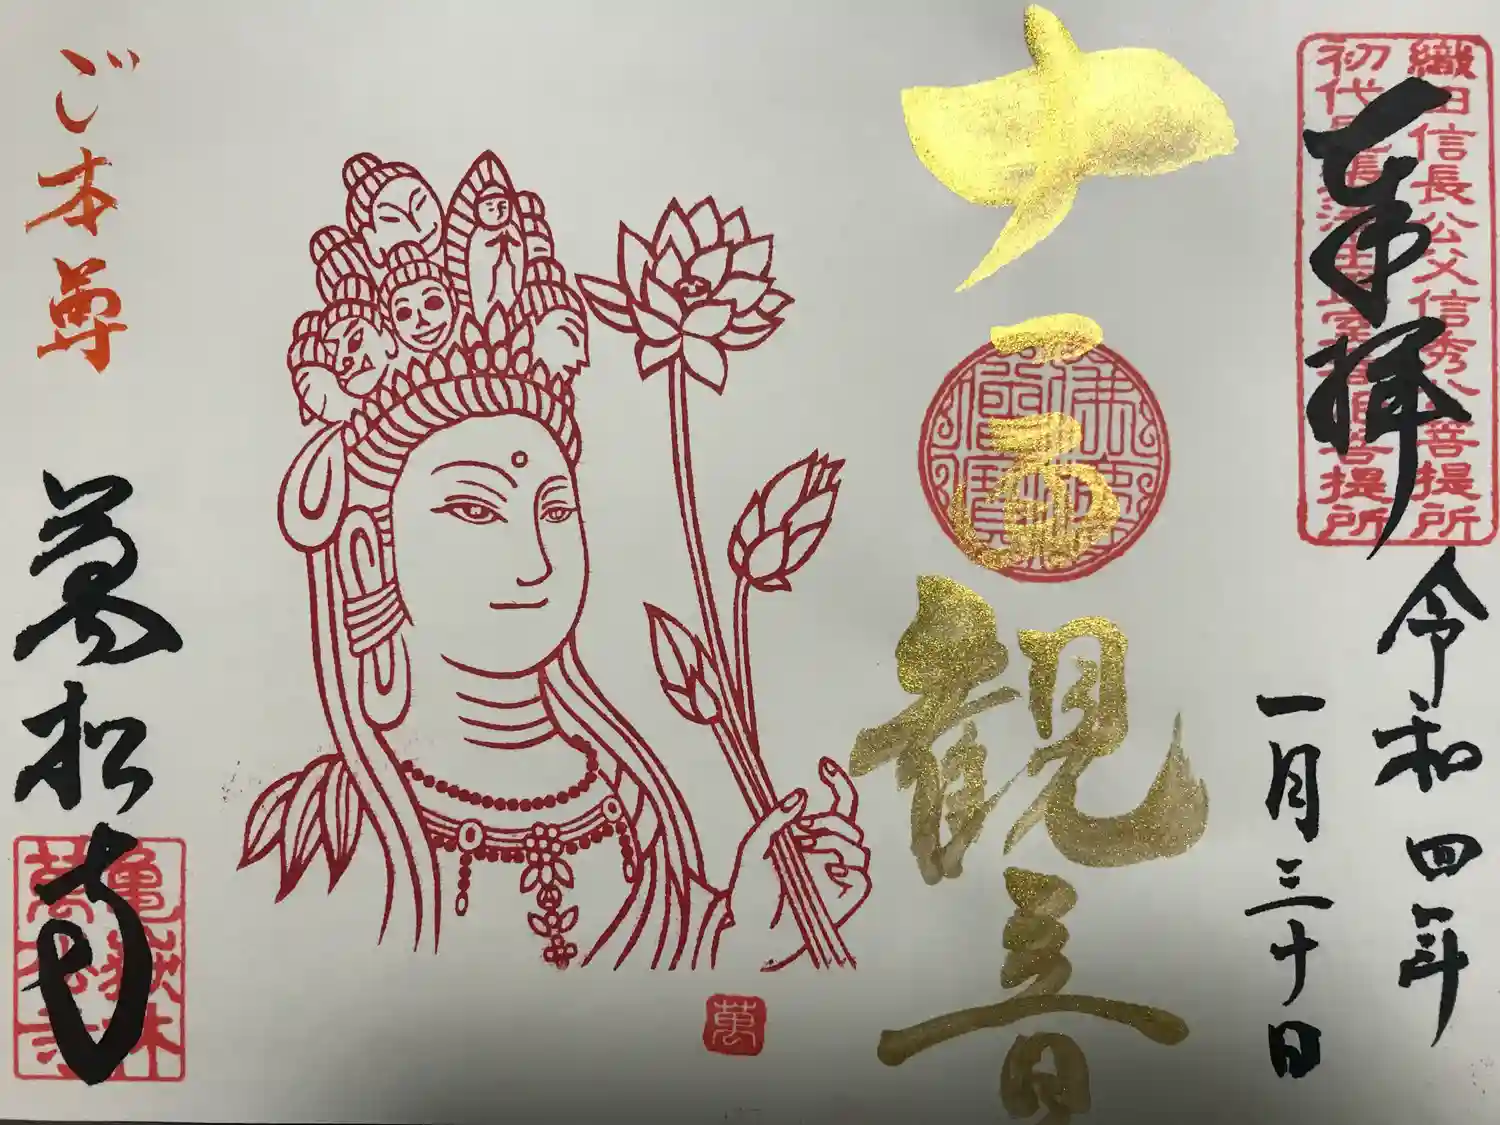 織田信長公父信秀公菩提所
初代 菩提所
奉拝
令和四年
一月三十日
十一面観音
萬
ご本尊
萬松寺
亀嶽林
萬松寺